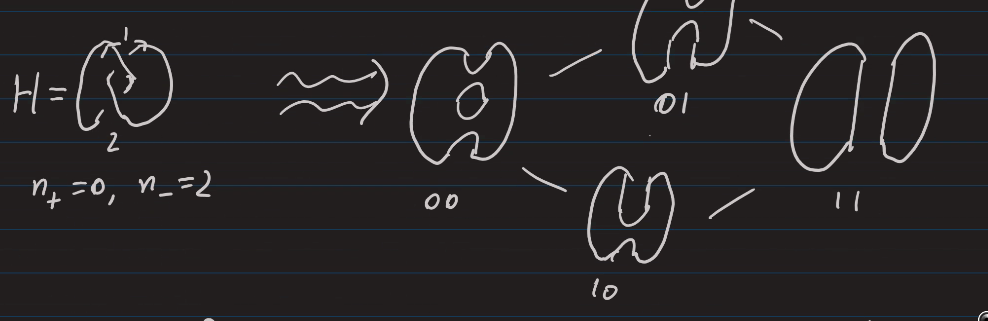 1
H =
2
n₊ = 0, n₋ = 2
00
01
10
11